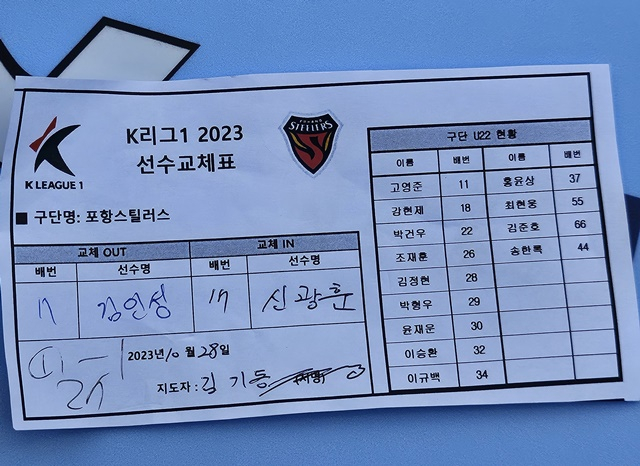 K리그1 2023
선수교체표
K LEAGUE 1
STEELERS
■ 구단명: 포항스틸러스
교체 OUT 교체 IN
배번 선수명 배번 선수명
김인성 17 신광훈
2023년 10 월 28일
지도자 : 김기동 (서명)
구단 U22 현황
이름 배번 이름 배번
고영준 11 홍윤상 37
강현제 18 최현웅 55
박건우 22 김준호 66
조재훈 26 송한록 44
김정현 28
박형우 29
윤재운 30
이승환 32
이규백 34